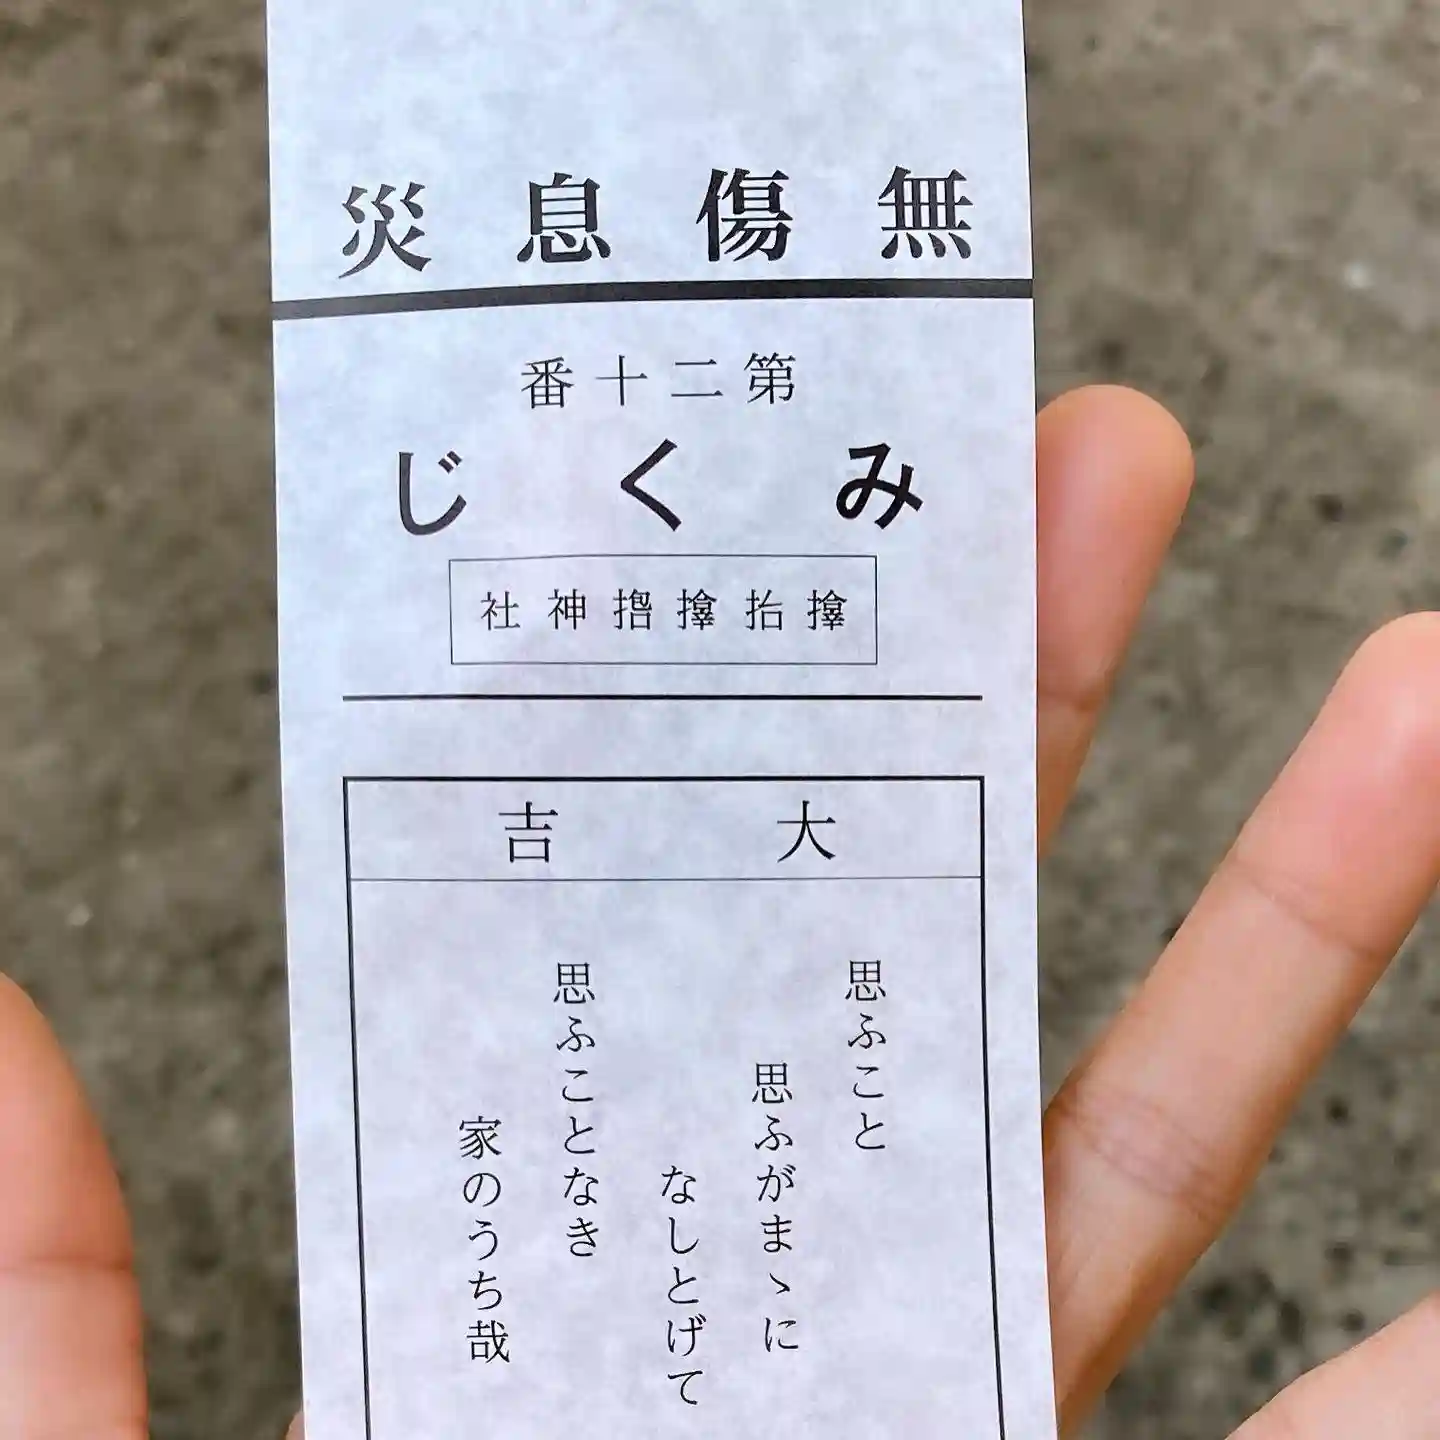 無傷息災
第二十番
みくじ
𪮷抬𪮷𪮇神社
大吉
思ふこと
思ふがまゝに
なしとげて
思ふことなき
家のうち哉